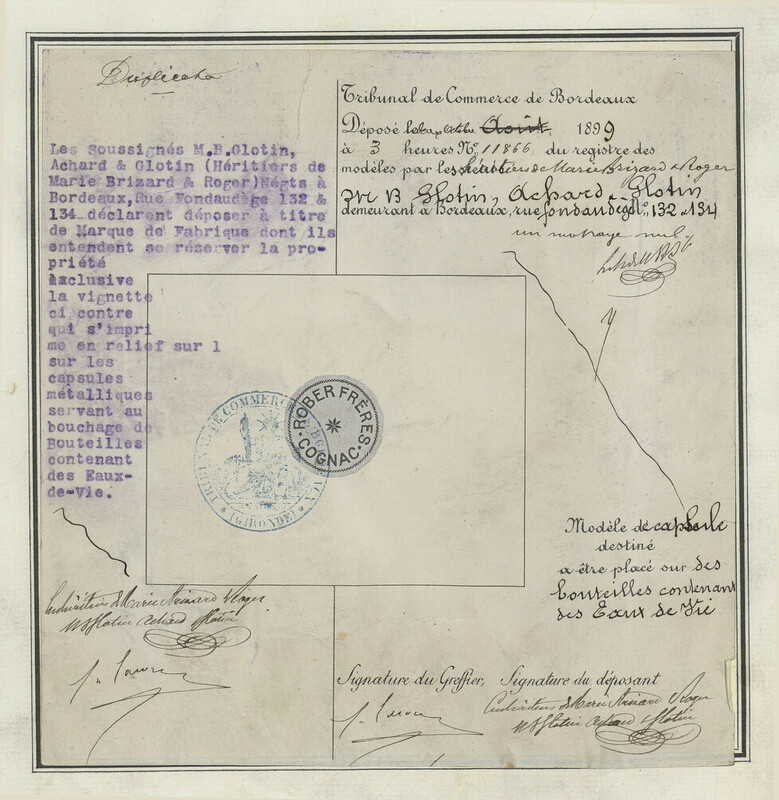 Duplicata
Les Soussignés M.B.Glotin,
Achard & Glotin (Héritiers de
Marie Brizard & Roger)Négts à
Bordeaux,Rue Fondaudège 132 &
134 déclarent déposer à titre
de Marque de Fabrique dont ils
entendent se réserver la pro-
priété
exclusive
la vignette
ci contre
qui s'impri
me en relief sur l
sur les
capsules
métalliques
servant au
bouchage de
Bouteilles
contenant
des Eaux-
de-Vie.
Tribunal de Commerce de Bordeaux
Déposé le Octobre Août 1899
à 3 heures N° 11866 du registre des
modèles par les héritiers de Marie Brizard & Roger
M B Glotin, Achard & Glotin
demeurant à Bordeaux, rue fondaudège N° 132 & 134
un mot rayé nul
TRIBUNAL DE COMMERCE
(GIRONDE)
ROBER FRÈRES
COGNAC
Modèle de capsule
destiné
a être placé sur des
bouteilles contenant
des Eaux de Vie
Les héritiers de Marie Brizard & Roger
MB Glotin Achard & Glotin
Signature du Greffier, Signature du déposant
Les héritiers de Marie Brizard & Roger
MB Glotin Achard & Glotin